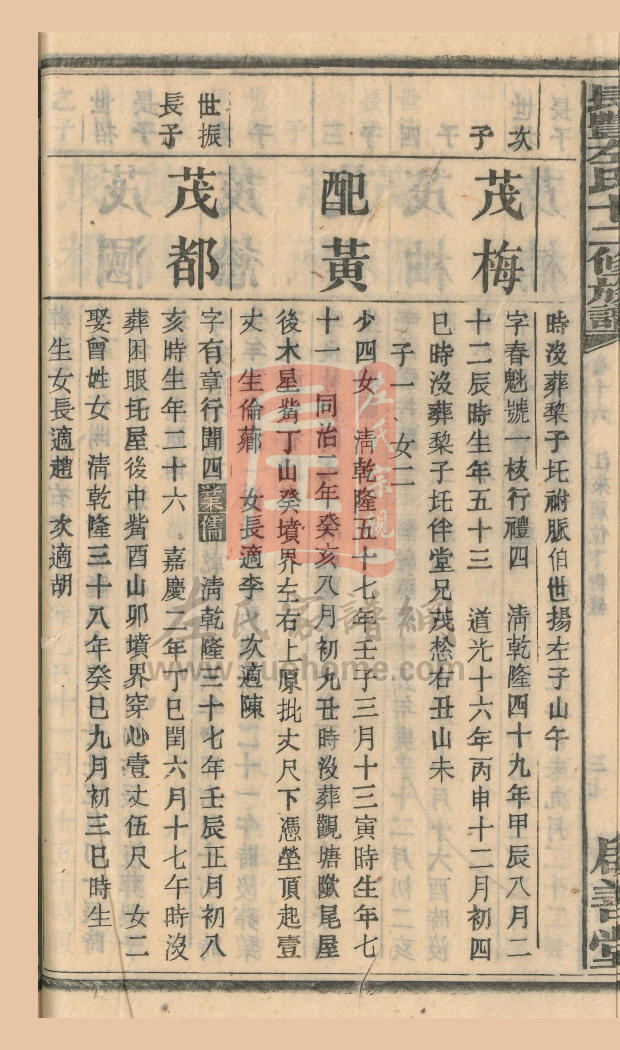 長豐左氏十二修族譜
時沒葬棃子圫祔脈伯世揚左子山午
次
子
茂梅
字春魁號一枝行禮四 清乾隆四十九年甲辰八月二
十二辰時生年五十三 道光十六年丙申十二月初四
巳時沒葬棃子圫伴堂兄茂桧右丑山未
子一、女二
配黃
少四女 清乾隆五十七年壬子三月十三寅時生年七
十一 同治二年癸亥八月初九丑時沒葬觀塘尾屋
後木星嘴丁山癸墳界左右上原批丈尺下憑塋頂起壹
丈 生倫薌 女長適李 次適陳
世振
長子
茂都
字有章行聞四業儒 清乾隆三十七年壬辰正月初八
亥時生年二十六 嘉慶二年丁巳閏六月十七午時沒
葬困眼圫屋後中嘴酉山卯墳界穿心壹丈伍尺 女二
娶曾姓女 清乾隆三十八年癸巳九月初三巳時生
生女長適趙 次適胡
左氏宗親
左氏家譜網
www.zuohome.com